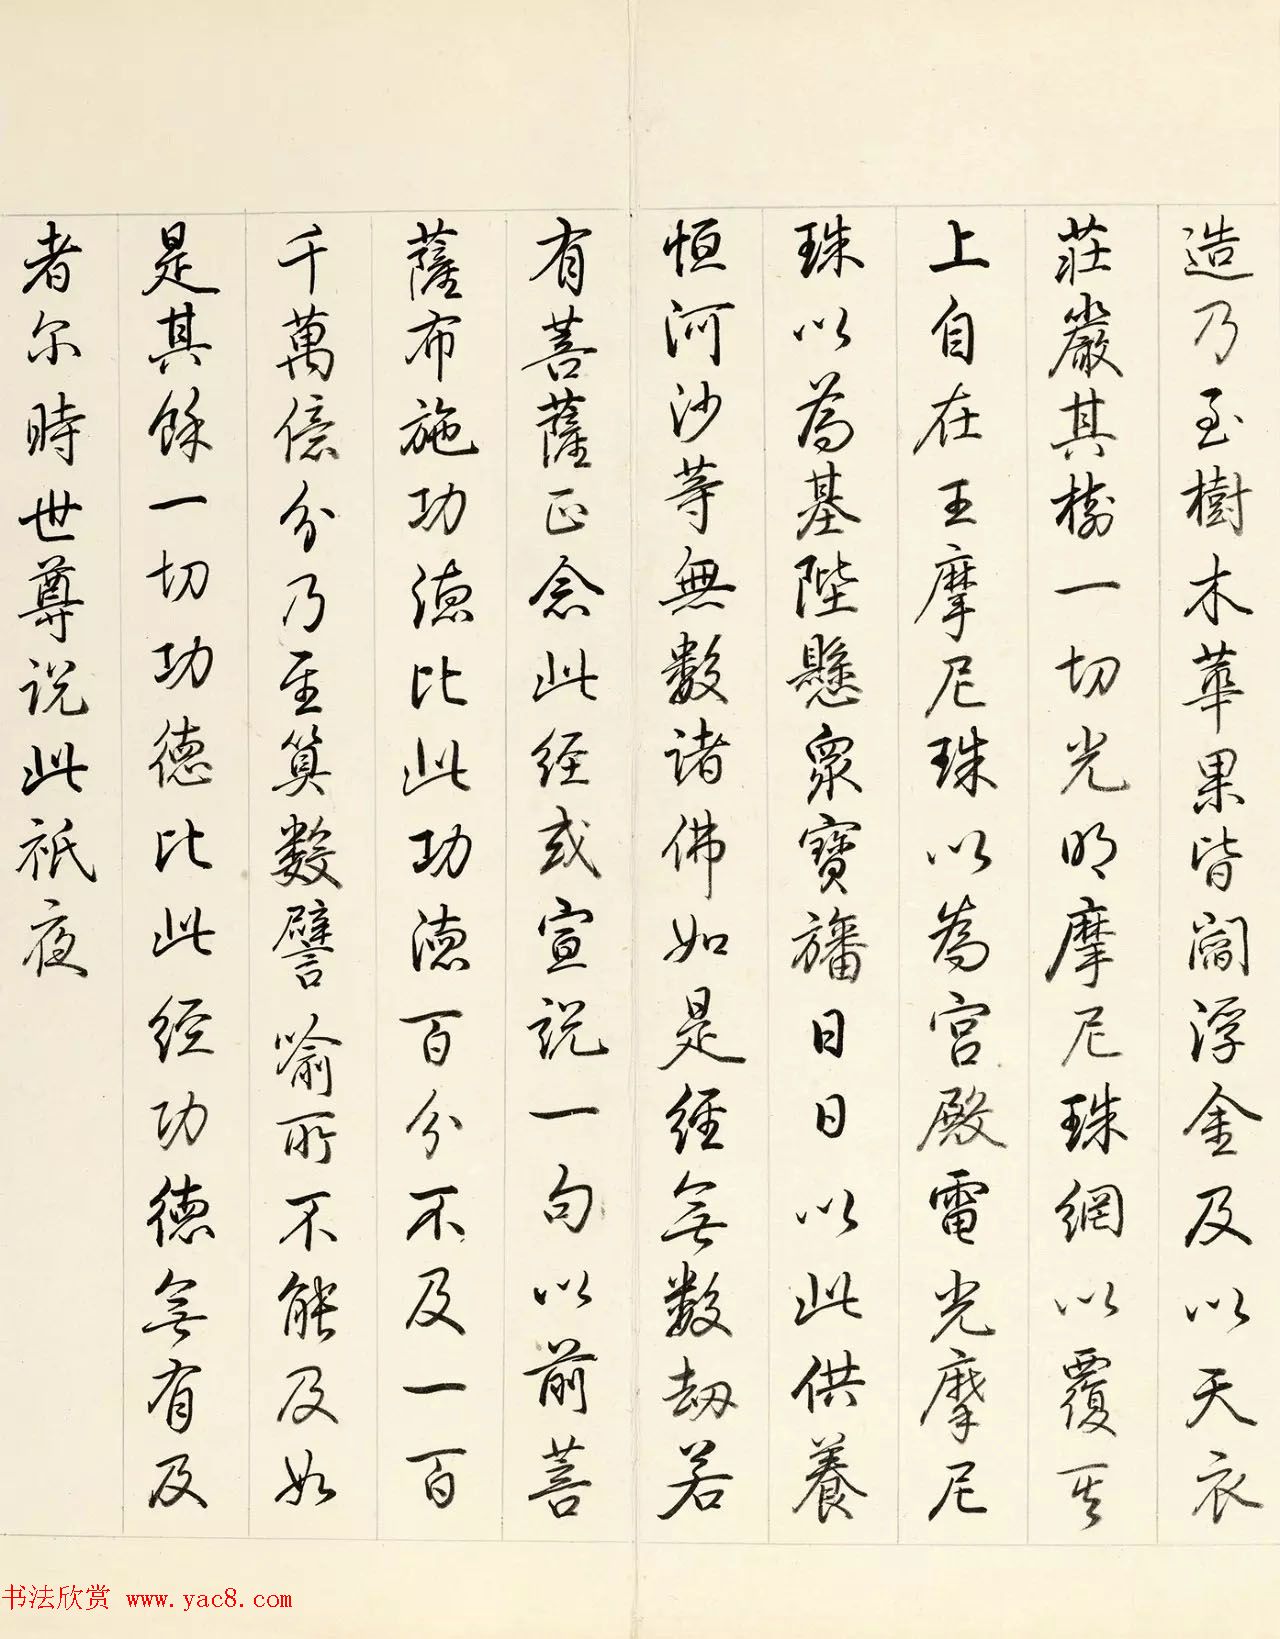 造乃至樹木華果皆閻浮金及以天衣
莊嚴其樹一切光明摩尼珠網以覆其
上自在王摩尼珠以為宮殿電光摩尼
珠以為基陛懸眾寶旛日日以此供養
恒河沙等無數諸佛如是經無數劫若
有菩薩正念此经或宣説一句以前菩
薩布施功德比此功德百分不及一百
千萬億分乃至算數譬喻所不能及如
是其餘一切功德比此经功德無有及
者尔時世尊説此祇夜
书法欣赏 www.yac8.com